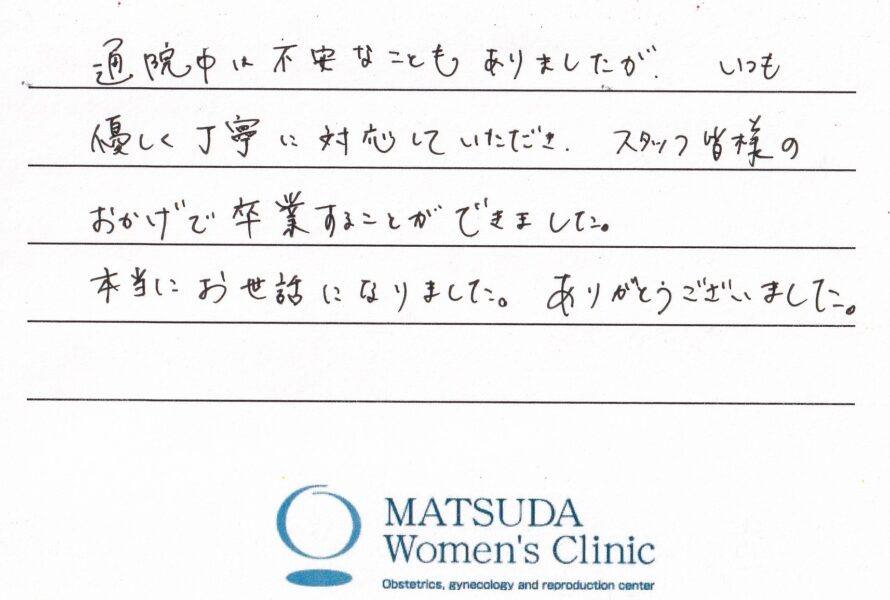 通院中は不安なこともありましたが、いつも
優しく丁寧に対応していただき、スタッフ皆様の
おかげで卒業することができました。
本当にお世話になりました。ありがとうございました。
MATSUDA
Women's Clinic
Obstetrics, gynecology and reproduction center